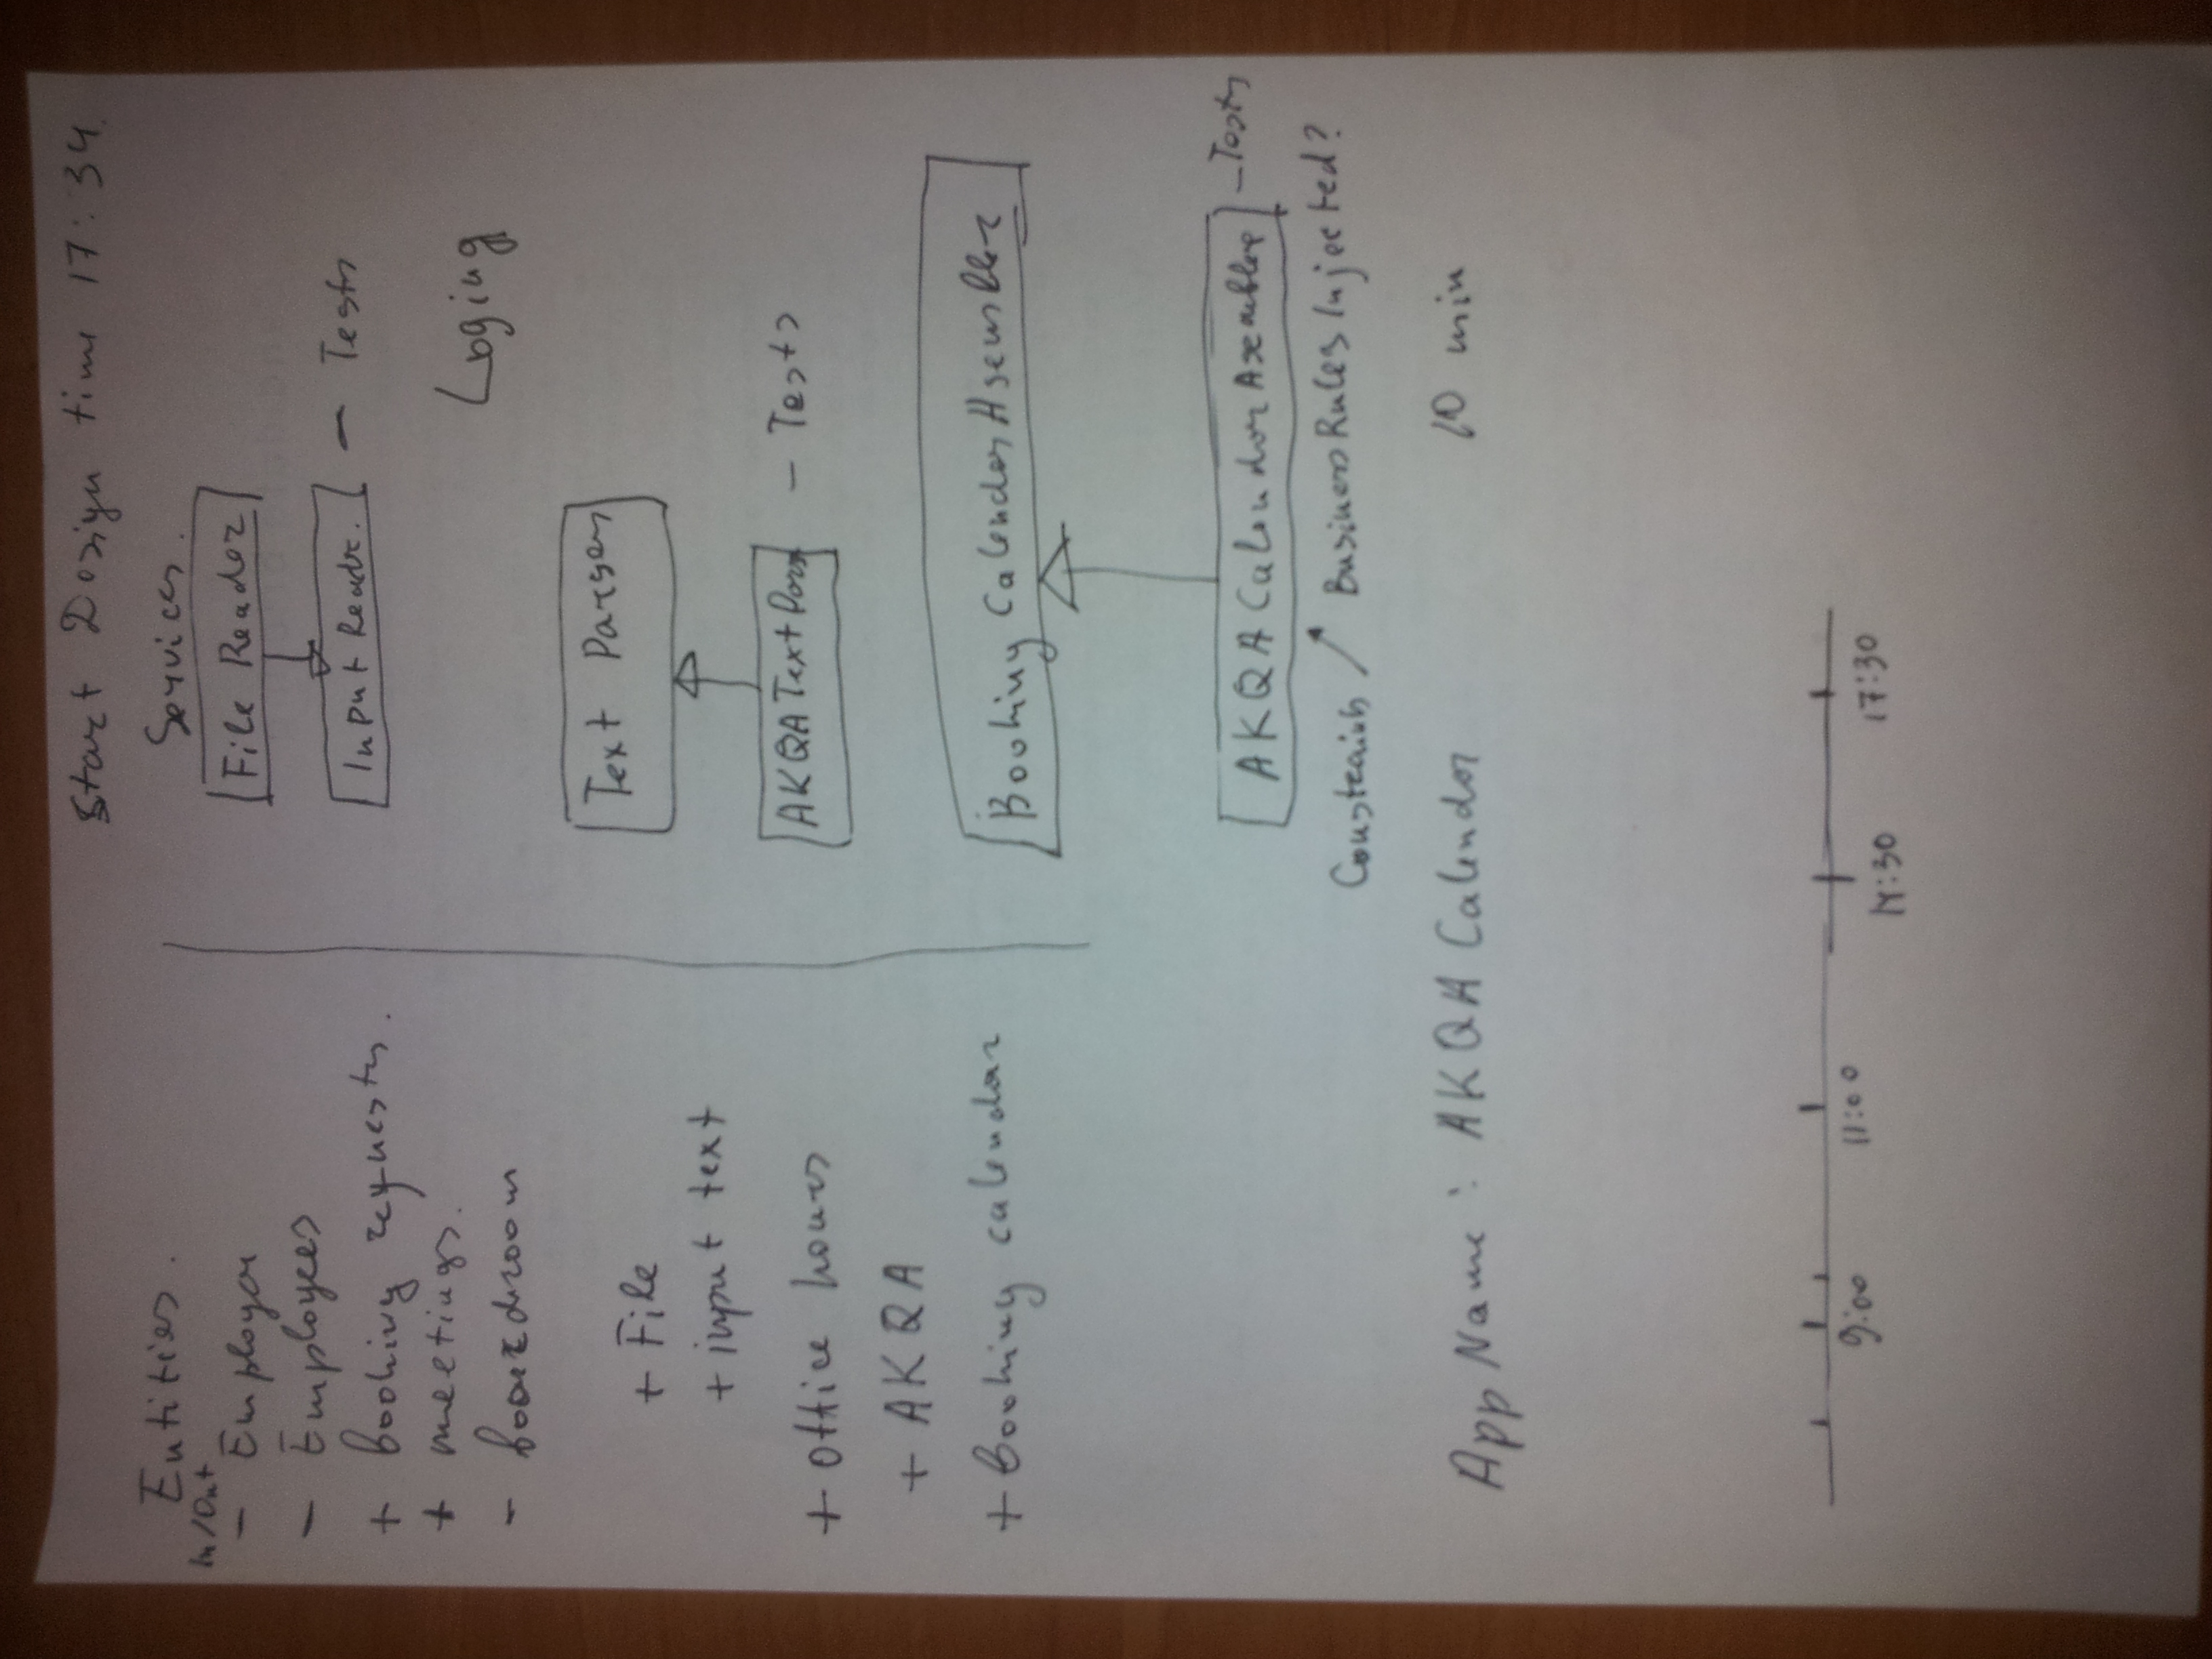 Start Design time 17:34.
Entities.
In/Out
- Employer
- Employees
+ Booking requests.
+ meetings.
- boardroom
+ File
+ input text
+ Office hours
+ AKQA
+ Booking calendar
Services.
File Reader
Input Readr. - Tests
Loging
Text Parser
AKQA Text Pars - Tests
Booking Calendar Asembler
AKQA Calendar Asembler - Tests
Constraints Business Rules Injected?
App Name: AKQA Calendar
10 min
9:00 11:00 14:30 17:30